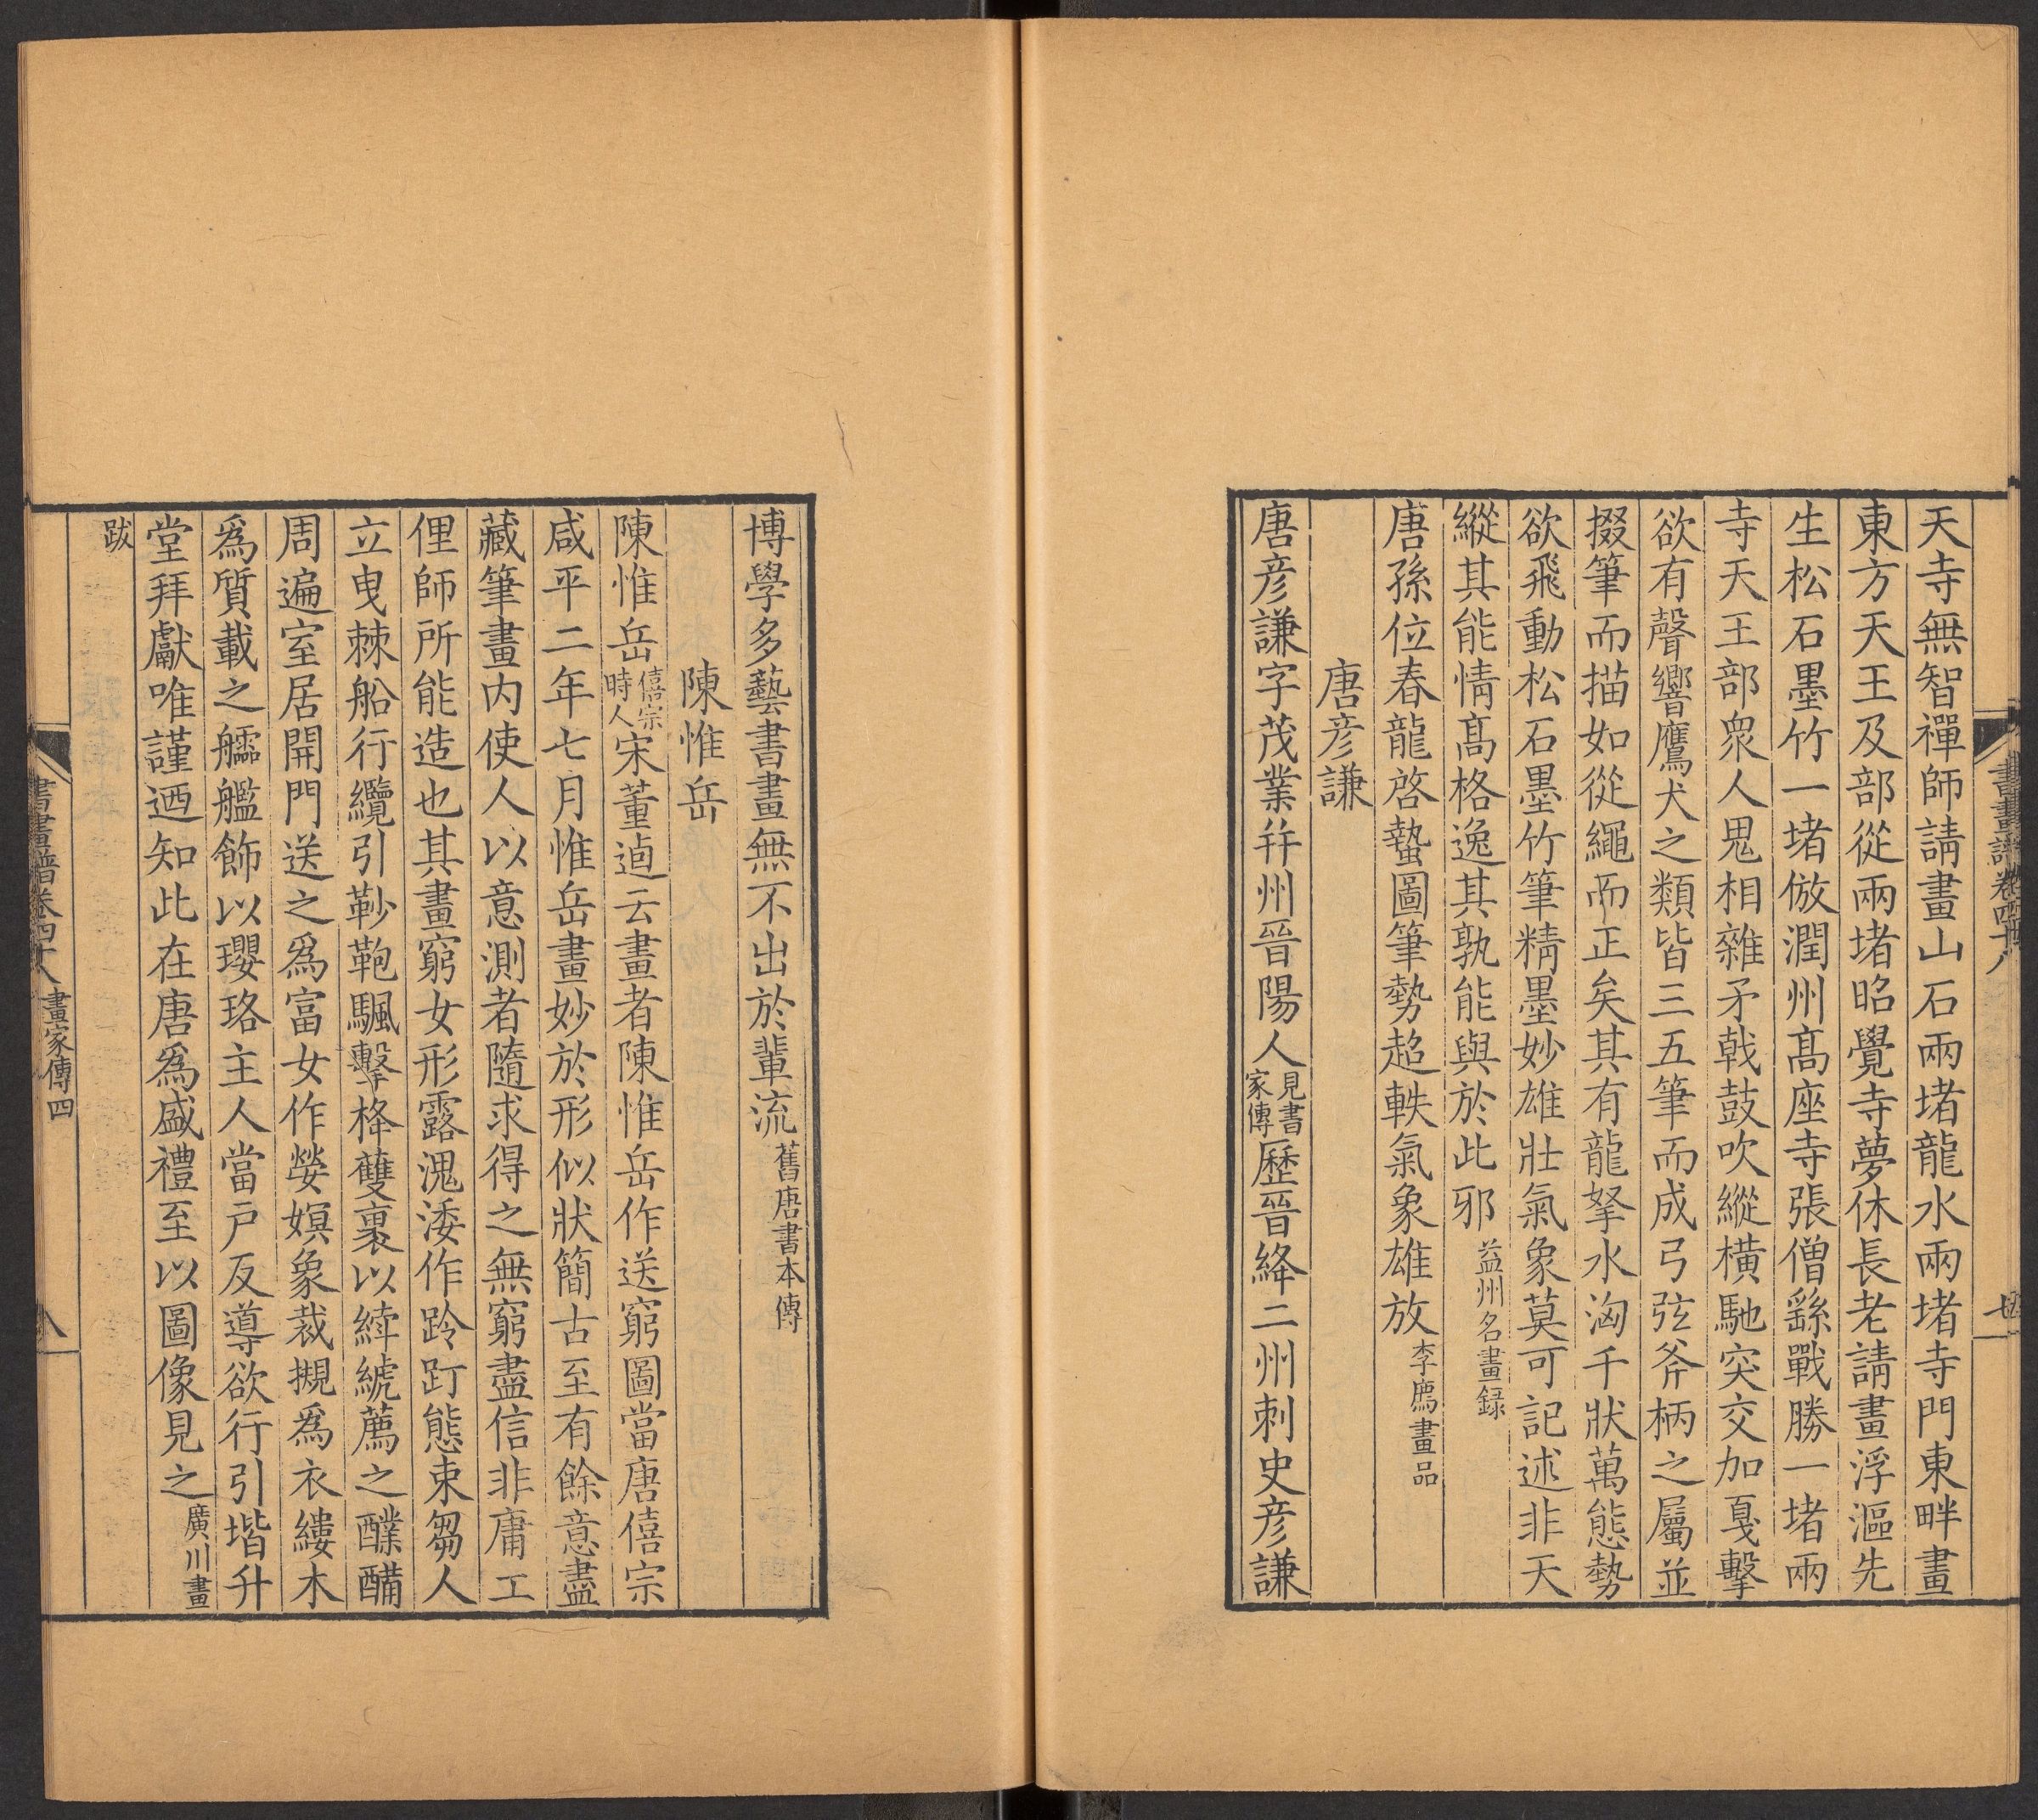 天寺無智禪師請畫山石兩堵龍水兩堵寺門東畔畫
東方天王及部從兩堵昭覺寺夢休長老請畫浮漚先
生松石墨竹一堵倣潤州髙座寺張僧繇戰勝一堵兩
寺天王部衆人鬼相雜矛戟鼓吹縱橫馳突交加戛擊
欲有聲響鷹犬之類皆三五筆而成弓弦斧柄之屬並
掇筆而描如從繩而正矣其有龍拏水洶千狀萬態勢
欲飛動松石墨竹筆精墨妙雄壯氣象莫可記述非天
縱其能情髙格逸其孰能與於此邪益州名畫録
唐孫位春龍啓蟄圖筆勢超軼氣象雄放李廌畫品
唐彥謙
唐彥謙字茂業幷州晉陽人見書家傳歷晉絳二州刺史彥謙
書畫譜卷四十八
七
博學多藝書畫無不出於輩流舊唐書本傳
陳惟岳
陳惟岳僖宗時人宋董逌云畫者陳惟岳作送窮圖當唐僖宗
咸平二年七月惟岳畫妙於形似狀簡古至有餘意盡
藏筆畫内使人以意測者隨求得之無窮盡信非庸工
俚師所能造也其畫窮女形露溾涹作跉䟓態束芻人
立曳棘船行纜引䩖鞄颿擊栙䉶裹以緈䋯薦之醭𨣲
周遍室居開門送之爲富女作嫈嫇象裁摫爲衣縷木
爲質載之艫艦飾以瓔珞主人當戸反導欲行引堦升
堂拜獻唯謹迺知此在唐爲盛禮至以圖像見之廣川畫
跋
書畫譜卷四十八 畫家傳四
八